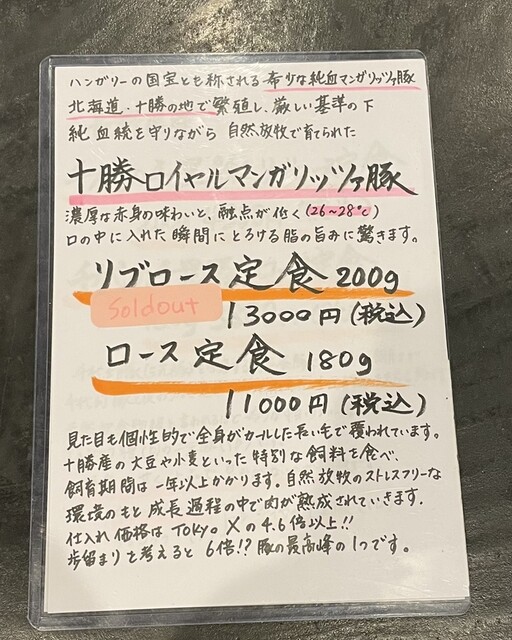 ハンガリーの国宝とも称される希少な純血マンガリッツァ豚
北海道・十勝の地で繁殖し、厳しい基準の下
純血統を守りながら 自然放牧で育てられた
十勝ロイヤルマンガリッツァ豚
濃厚な赤身の味わいと、融点が低く(26~28℃)
口の中に入れた瞬間にとろける脂の旨みに驚きます。
リブロース定食 200g
Soldout
13000円(税込)
ロース定食 180g
11000円(税込)
見た目も個性的で全身がカールした長い毛で覆われています。
十勝産の大豆や小麦といった特別な飼料を食べ、
飼育期間は一年以上かかります。自然放牧のストレスフリーな
環境のもと成長過程の中で肉が熟成されていきます。
仕入れ価格はTOKYO Xの4.6倍以上!!
歩留まりを考えると6倍!?豚の最高峰の1つです。